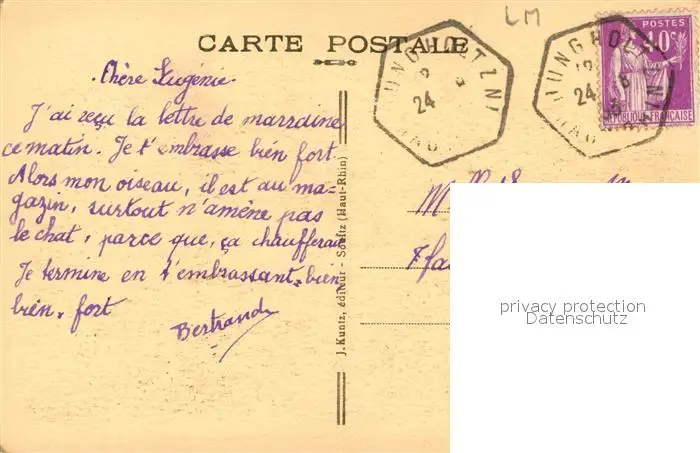 LM
CARTE POSTALE
Chère Eugénie.
J'ai reçu la lettre de marraine
ce matin. Je t'embrasse bien fort.
Alors mon oiseau, il est au ma-
gazin, surtout n'amène pas
le chat, parce que, ça chaufferai
Je termine en t'embrassant bien
bien. fort
Bertrande
J. Kuntz, éditeur - Soultz (Haut-Rhin)
JUNGHOLTZ
24
JUNGHOLTZ
12
24
POSTES
40c
RÉPUBLIQUE FRANÇAISE
privacy protection
Datenschutz